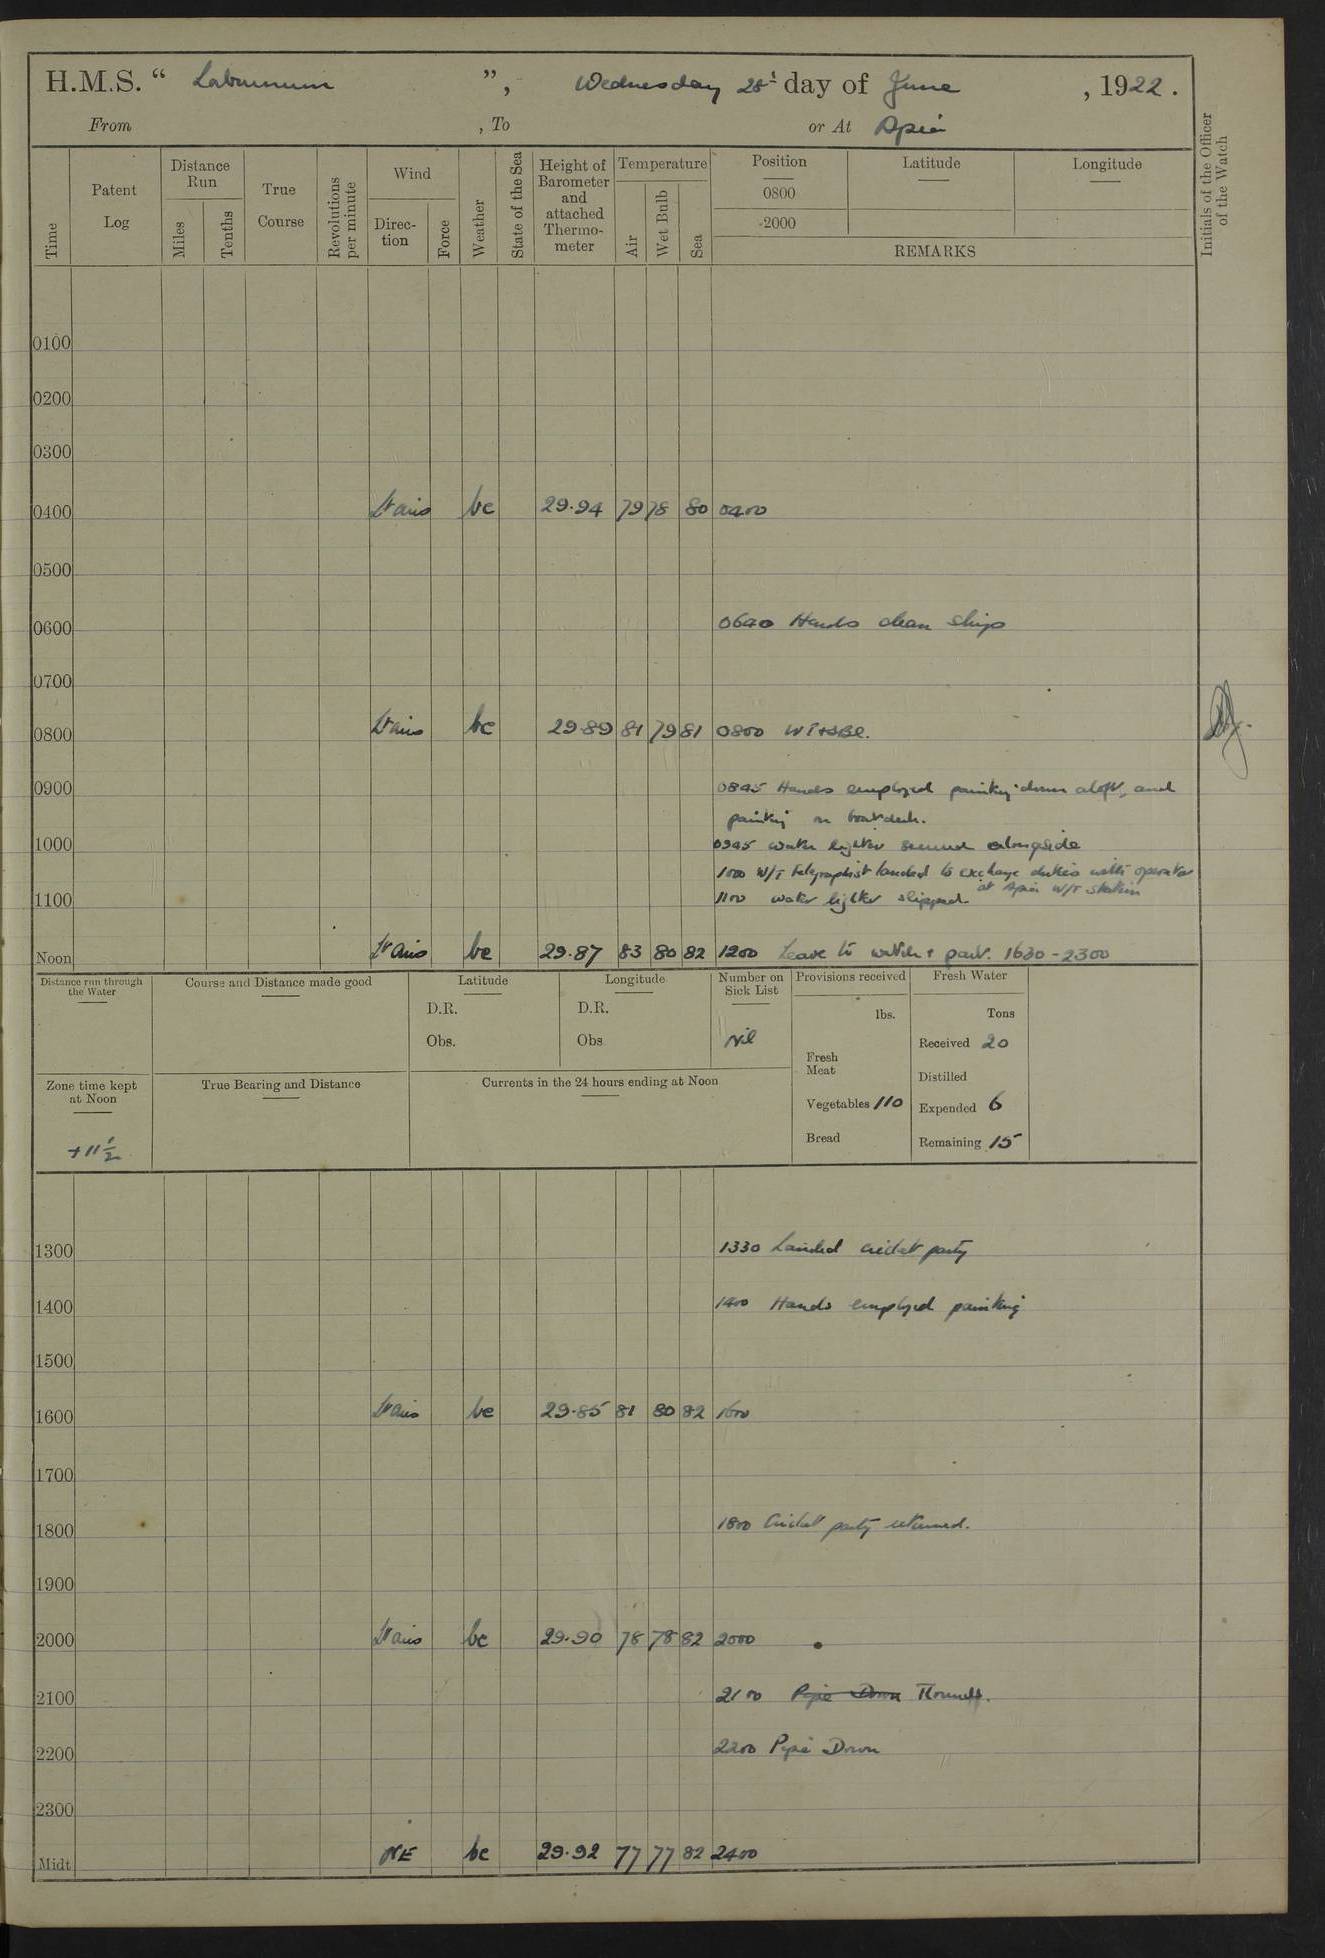 H.M.S. “ Laburnum ”, Wednesday 28t day of June , 1922.
From , To or At Apia
Time Patent Log Distance Run Miles Tenths True Course Revolutions per minute Wind Direction Force Weather State of the Sea Height of Barometer and attached Thermometer Temperature Air Wet Bulb Sea Position 0800 2000 Latitude Longitude
REMARKS
Initials of the Officer of the Watch
0100
0200
0300
0400 Lt airs bc 29.94 79 78 80 0400
0500
0600 0640 Hands clean ship
0700
0800 Lt airs bc 29.89 81 79 81 0800
0900 0845 Hands employed painting down aloft, and
painting on boatdeck.
1000 0945 water lighter secured alongside
1000 W/T Telegraphist landed to exchange duties with operator
at Apia W/T Station
1100 1100 water lighter slipped.
Noon Lt Airs bc 29.87 83 80 82 1200 Leave to watch & part. 1630-2300
Distance run through the Water
Course and Distance made good
Latitude D.R. Obs.
Longitude D.R. Obs
Number on Sick List Nil
Provisions received lbs.
Fresh Meat
Vegetables 110
Bread
Fresh Water Tons
Received 20
Distilled
Expended 6
Remaining 15
Zone time kept at Noon +11½
True Bearing and Distance
Currents in the 24 hours ending at Noon
1300 1330 Landed cricket party
1400 1400 Hands employed painting
1500
1600 Lt airs bc 29.85 81 80 82 1600
1700
1800 1800 Cricket party returned.
1900
2000 Lt airs bc 29.90 78 78 82 2000
2100 2100 Pipe Down Rounds.
2200 2200 Pipe Down
2300
Midt NE bc 29.92 77 77 82 2400